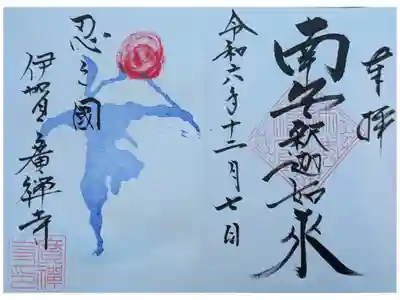 奉拝
南無釈迦如来
令和六年十二月七日
忍之國
伊賀廣禅寺